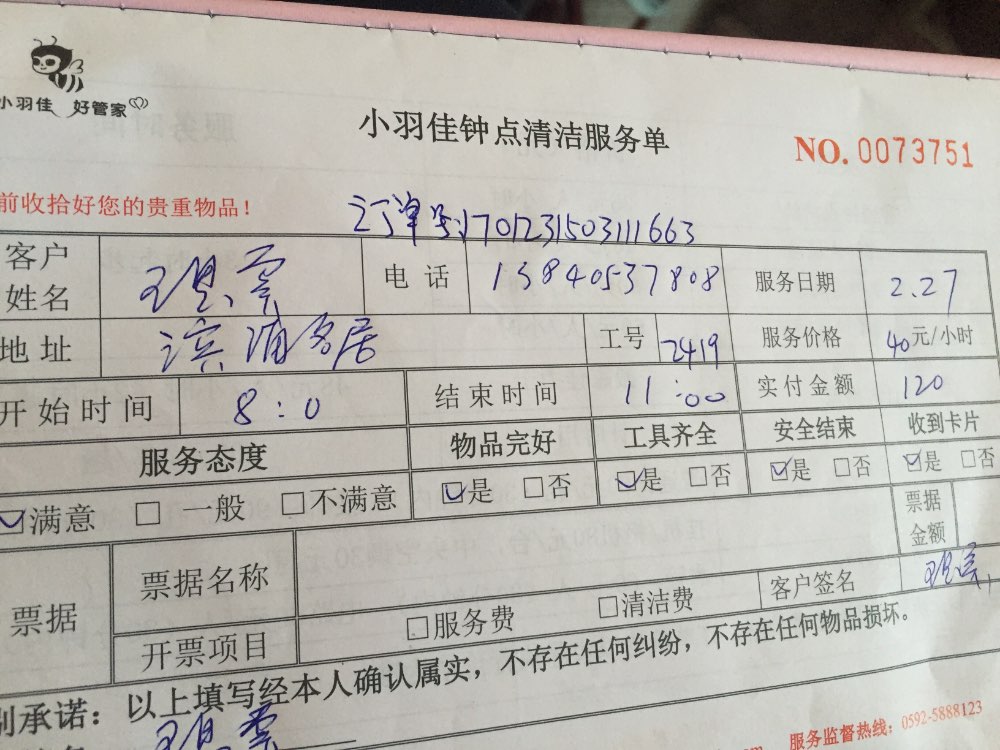 小羽佳 好管家
小羽佳钟点清洁服务单
NO. 0073751
前收拾好您的贵重物品！
订单号1701231503111663
客户姓名 电话 13840537808 服务日期 2.27
地址 滨浦名居 工号 2419 服务价格 40元/小时
开始时间 8:0 结束时间 11:00 实付金额 120
服务态度 物品完好 工具齐全 安全结束 收到卡片
☑满意 □一般 □不满意 ☑是 □否 ☑是 □否 ☑是 □否 ☑是 □否
票据 票据名称 票据金额
开票项目 □服务费 □清洁费 客户签名
别承诺：以上填写经本人确认属实，不存在任何纠纷，不存在任何物品损坏。
服务监督热线：0592-5888123